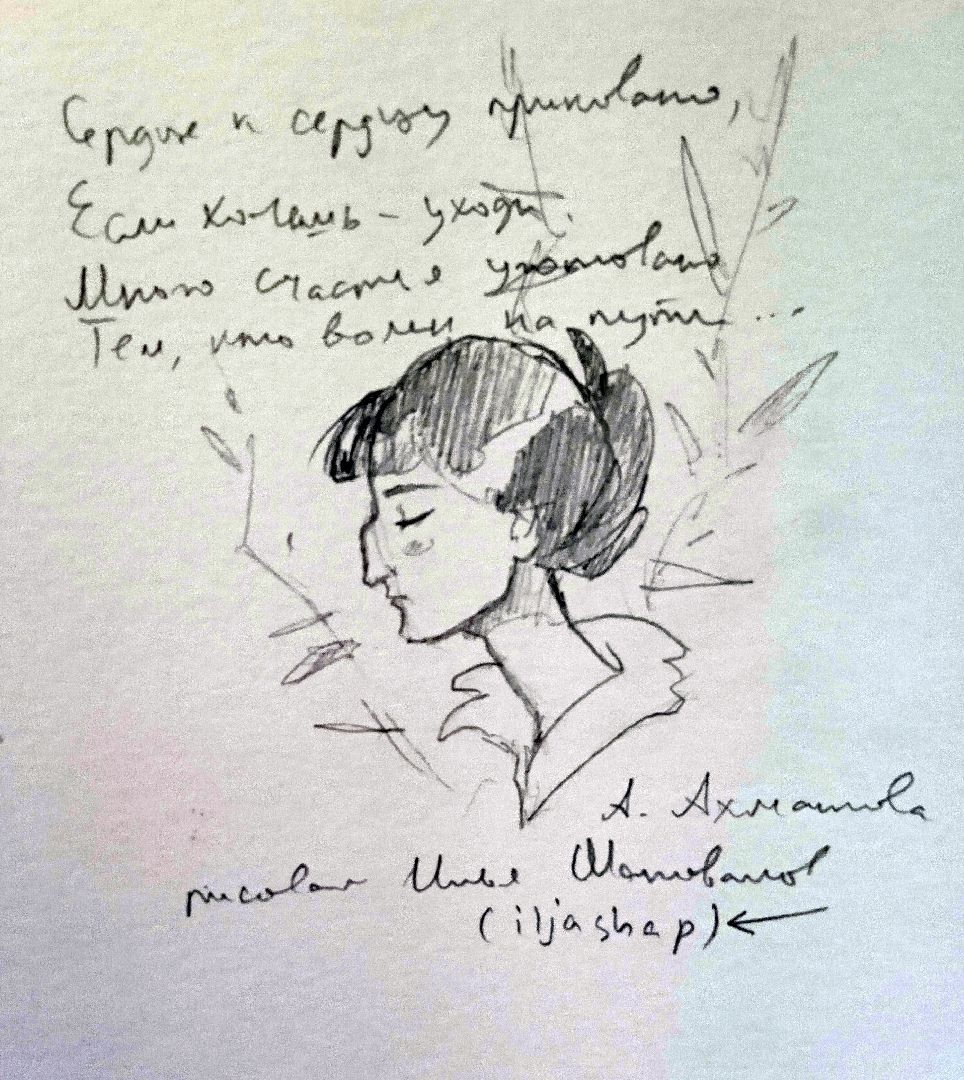 Сердце к сердцу приковано,
Если хочешь – уходи.
Много счастья уготовано
Тем, кто волен на пути...
А. Ахматова
рисовал Илья Шаповалов
(iljashap)